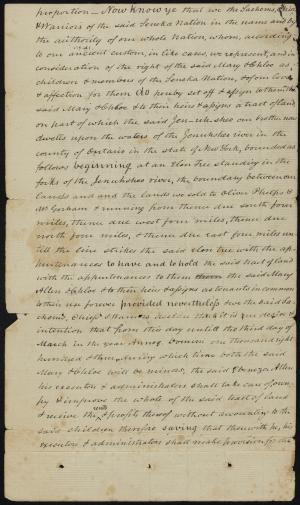 proportion — Now know ye that we the Sachems, Chiefs
& Warriors of the said Seneka Nation in the name and by
the authority of our whole Nation, whom, according
to our ancient custom, in like cases, we represent, and in
consideration of the right of the said Mary & Chloe as
children & members of the Seneka Nation, & of our love
& affection for them do hereby set off & assign to them the
said Mary & Chloe & to their heirs & assigns a tract of land
on part of which the said Jen-uh-shes our brother now
dwells upon the waters of the Jenuhshes river in the
county of Ontario in the state of New York, bounded as
follows beginning at an Elm tree standing in the
forks of the Jenuhshes river, the boundary between our
lands and and the lands we sold to Oliver Phelps &
Mr Gorham & running from thence due south four
miles, thence due west four miles, thence due
north four miles, & thence due east four miles un
till the line strikes the said elm tree with the ap
purtenances to have and to hold the said tract of land
with the appurtenances to them the said Mary
Allen & Chloe & to their heirs & assigns as tenants in common
to their use forever provided nevertheless & we the said Sa
chems, Chiefs & Warriors declare that it is our desire &
intention that from this day untill the third day of
March in the year Annoq Domini one thousand eight
hundred & three, during which time both the said
Mary & Chloe will be minors, the said Ebenezer Allen
his executors & administrators shall take care of, occu
py & improve the whole of the said tract of land
& receive the rents & profits thereof without accounting to the
said children therefor saving that therewith he, his
executors & administrators shall make provision for the